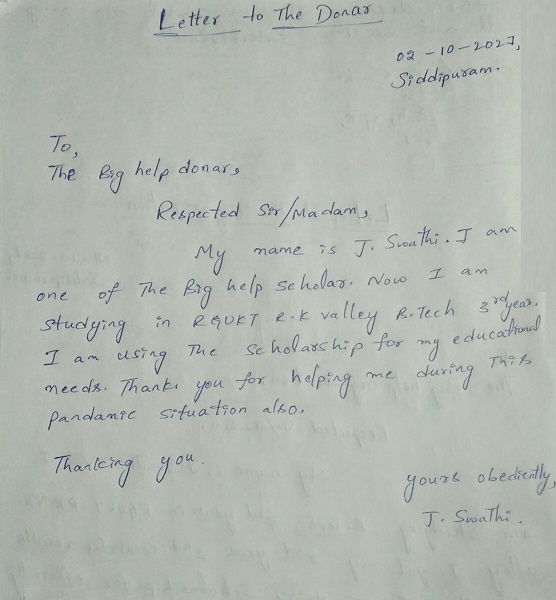 Letter to The Donar
02-10-2021,
Siddipuram.
To,
The Big help donar,
Respected Sir/Madam,
My name is J. Swathi. I am
one of The Big help scholar. Now I am
studying in RGUKT R.K valley B.Tech 3rd year.
I am using The scholarship for my educational
needs. Thank you for helping me during This
Pandamic situation also.
Thanking you.
yours obediently,
J. Swathi.